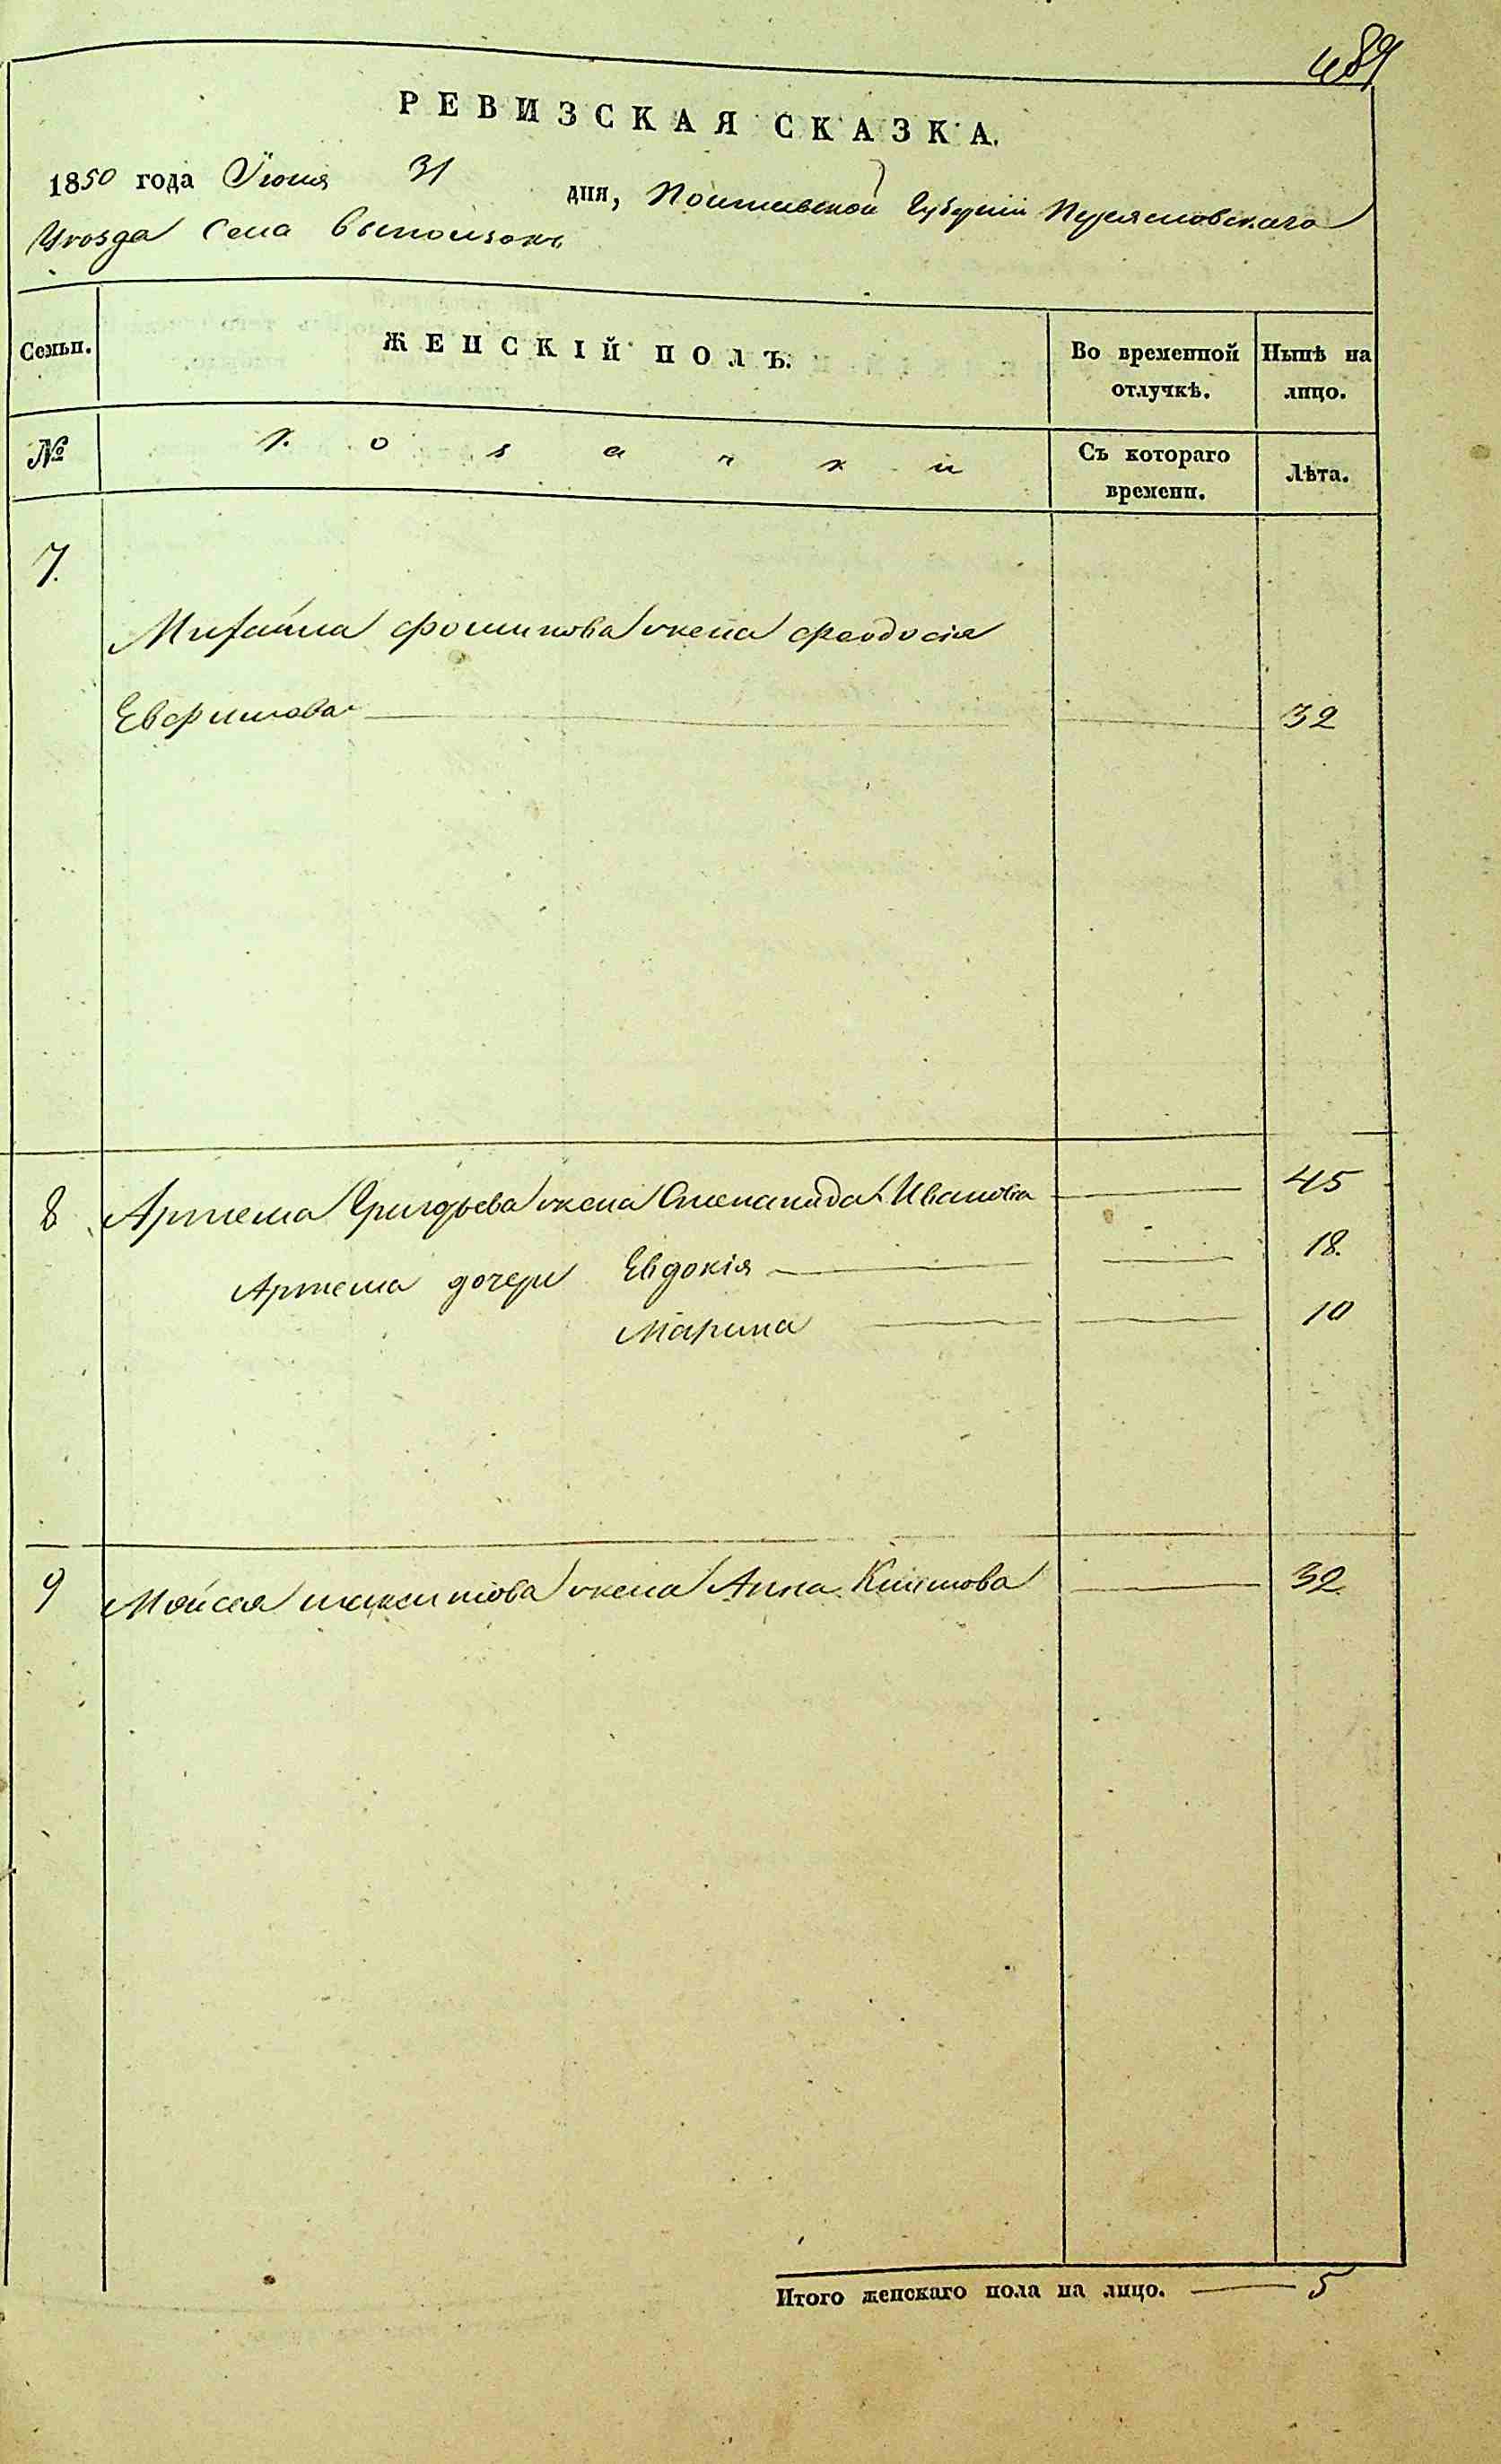 489
РЕВИЗСКАЯ СКАЗКА.
1850 года Іюня 31 дня, Полтавской Губерніи Переясловскаго
Уѣзда Села Выползокъ
Семьи. ЖЕНСКІЙ ПОЛЪ. Во временной отлучкѣ. Нынѣ на лицо.
№ козачки Съ котораго времени. Лѣта.
7.
Михайла Фоминова жена Феодосія
Евфимова 32
8 Артема Григорьева жена Степанида Иванова 45
Артема дочери Евдокія 18.
Марина 10
9 Мойсея максимова жена Анна Климова 32.
Итого женскаго пола на лицо. 5